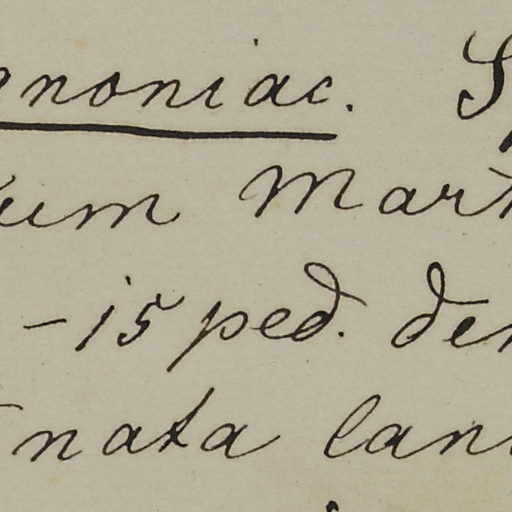 gnoniac. S
um Mart
-15 ped. den
nata lan